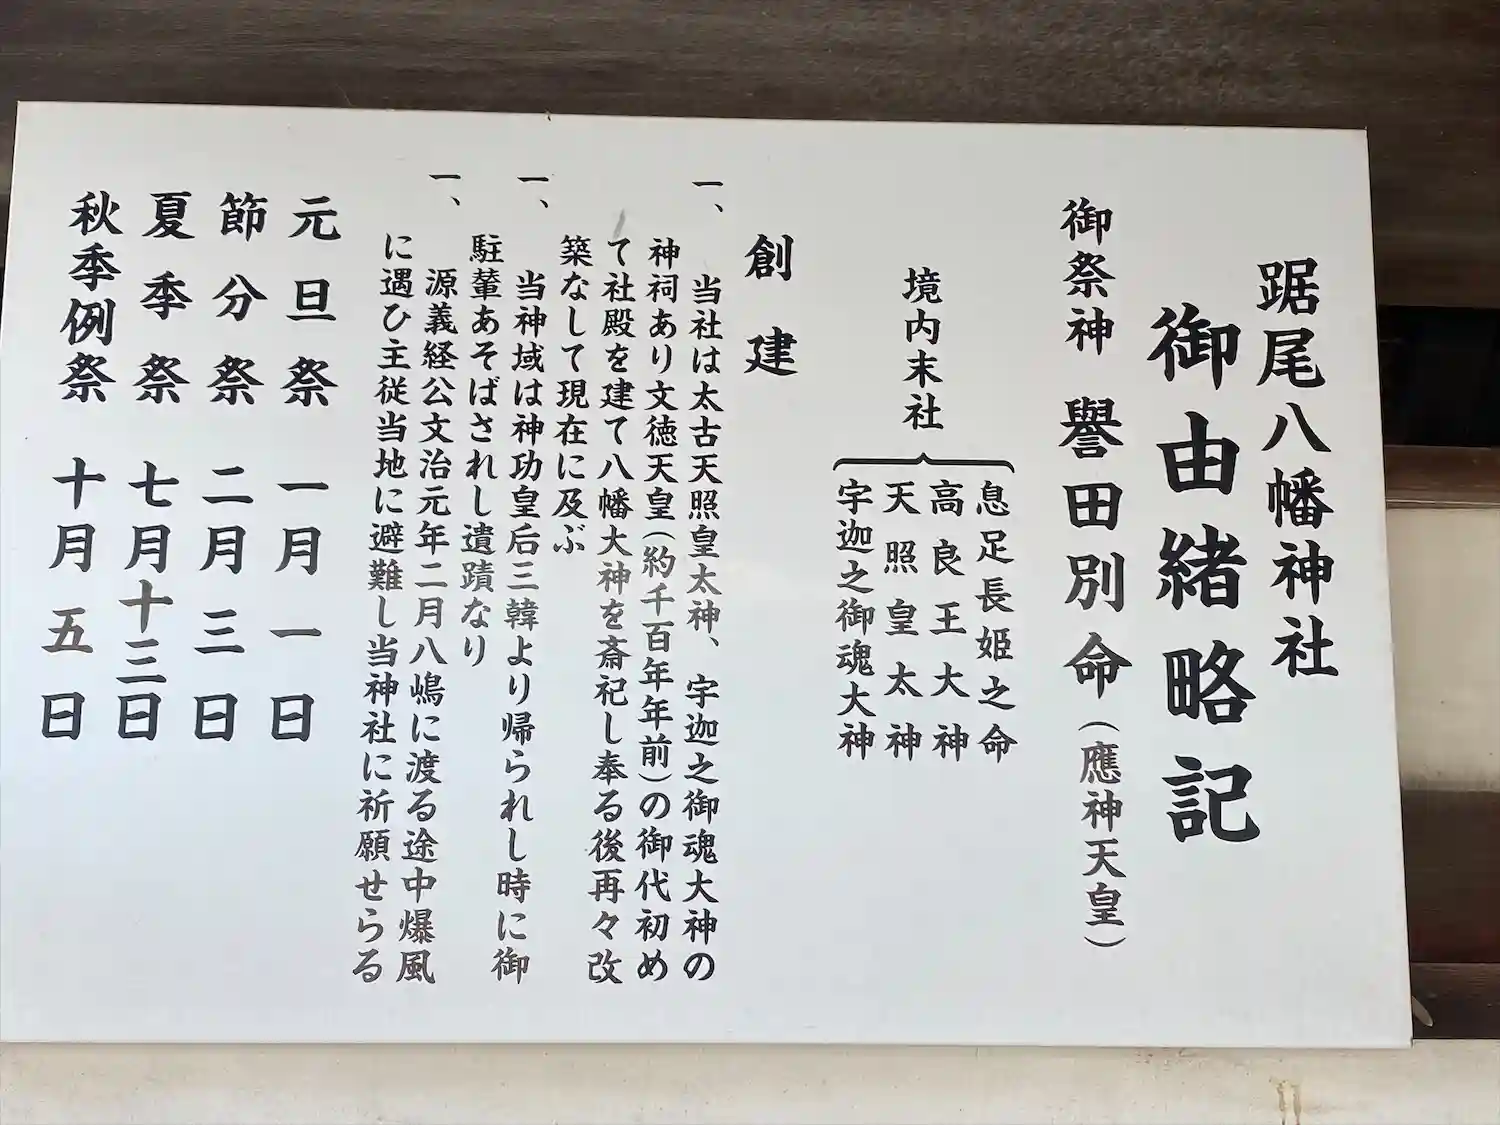 踞尾八幡神社
御由緒略記
御祭神 譽田別命(應神天皇)
境内末社
息足長姫之命
高良王大神
天照皇太神
宇迦之御魂大神
創建
一、当社は太古天照皇太神、宇迦之御魂大神の
神祠あり文徳天皇(約千百年年前)の御代初め
て社殿を建て八幡大神を斎祀し奉る後再々改
築なして現在に及ぶ
一、当神域は神功皇后三韓より帰られし時に御
駐輦あそばされし遺蹟なり
一、源義経公文治元年二月八嶋に渡る途中爆風
に遇ひ主従当地に避難し当神社に祈願せらる
元旦祭 一月一日
節分祭 二月三日
夏季祭 七月十三日
秋季例祭 十月五日